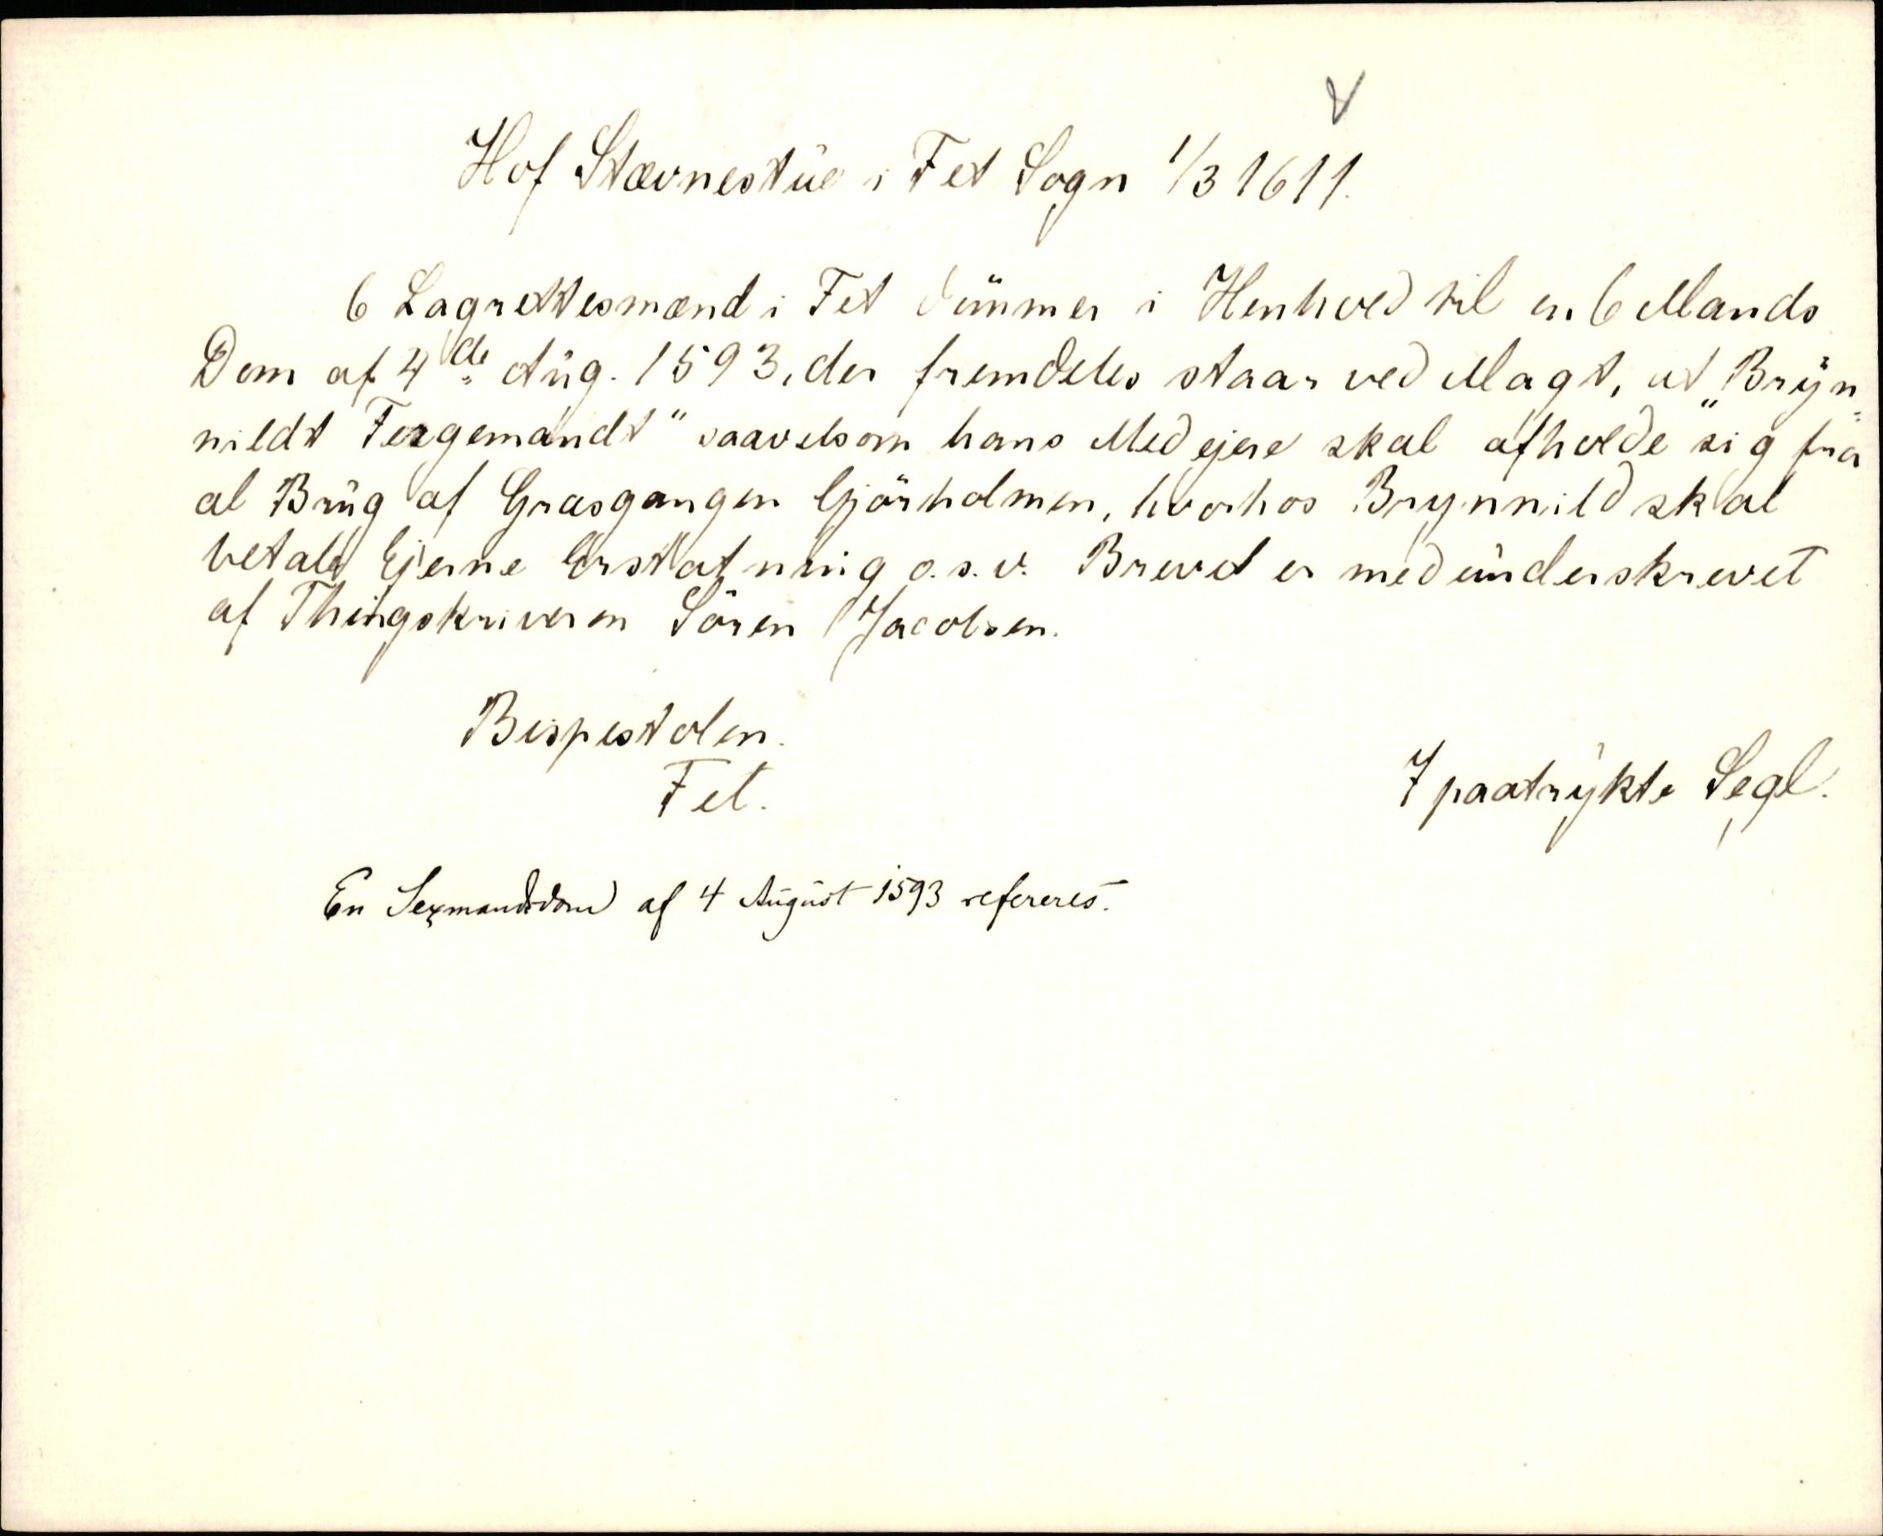 Hof Stævnestue i Fet Sogn 1/3 1611.
6 Lagrettesmænd i Fet dömmer i Henhold til en 6 Mands
Dom af 4de Aug. 1593, der fremdeles staar ved Magt, at "Bryn-
nildt Fergemandt" saavelsom hans Medejere skal afholde sig fra
al Brug af Græsgangen Gjörholmen, hvorhos Brynnild skal
betale Ejerne Erstatning o.s.v. Brevet er medunderskrevet
af Thingskriveren Sören Jacobsen.
Bispestolen.
Fet.
7 paatrykte Segl.
En Sexmandsdom af 4 August 1593 refereres.